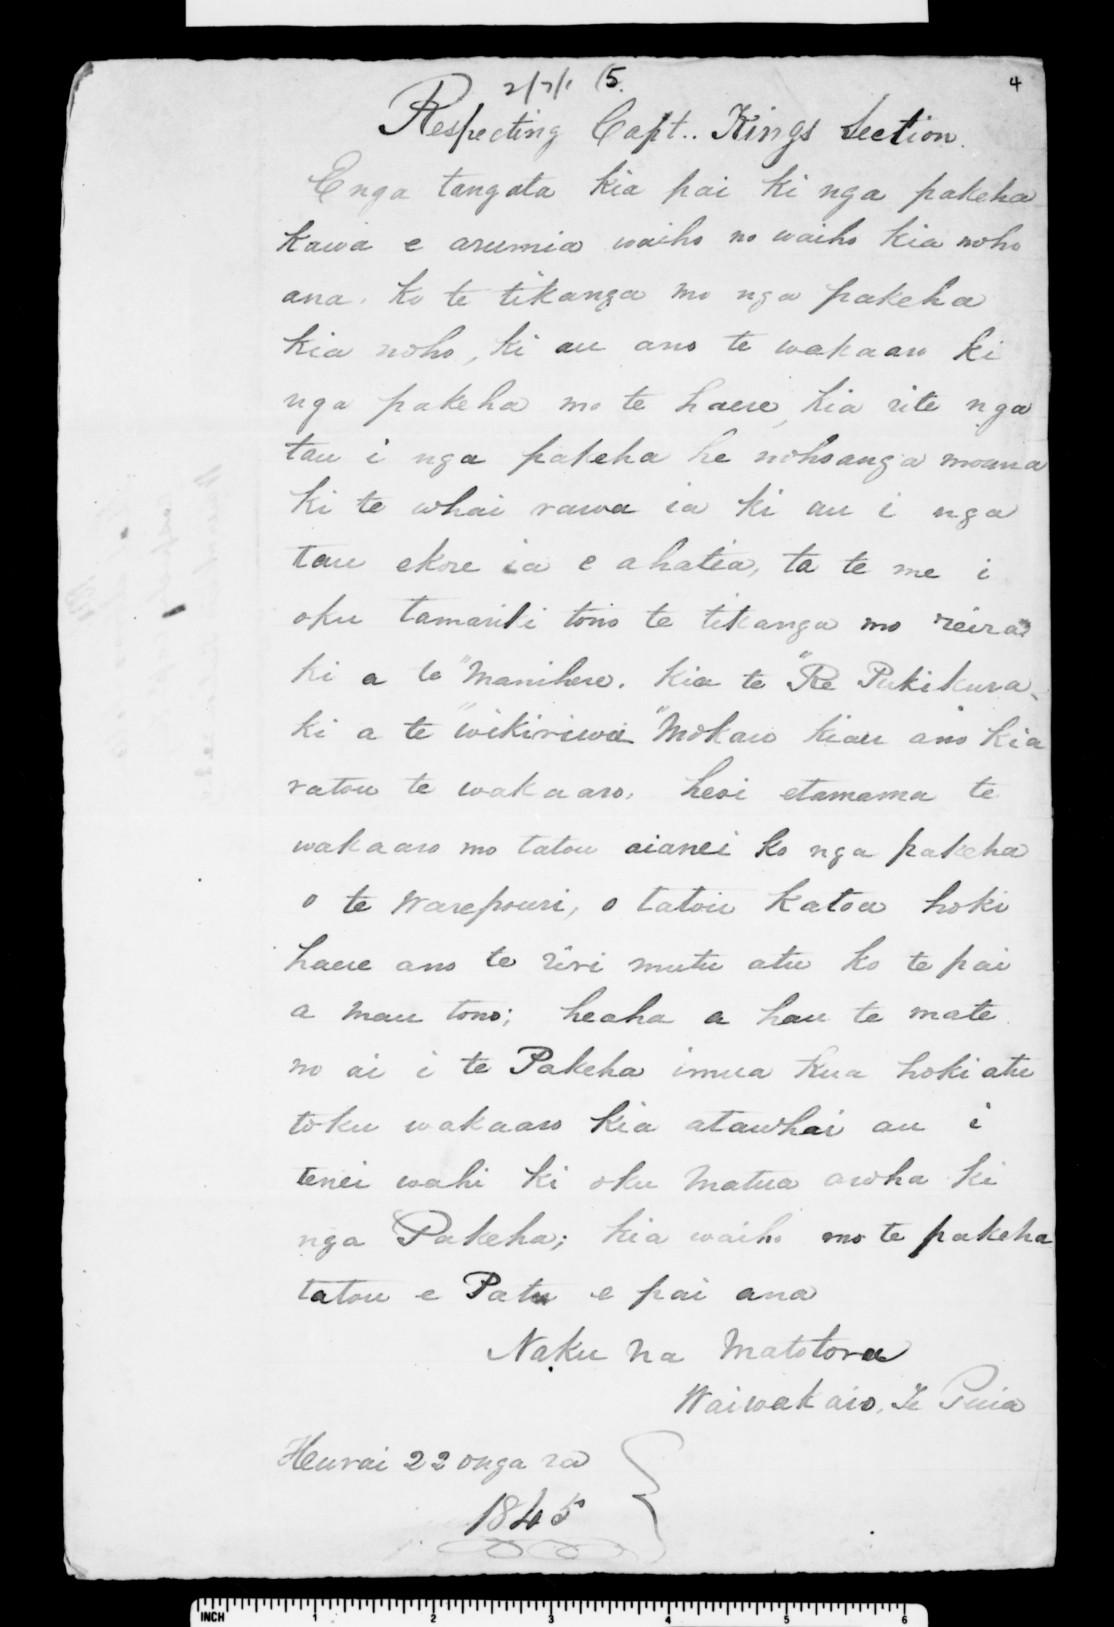 4
Respecting Capt.. Kings Section.
E nga tangata kia pai ki nga pakeha
kawa e arumia waiho no waiho kia noho
ana. ko te tikanga mo nga pakeha
kia noho, ki au ano te wakaaro ki
nga pakeha mo te haere, kia rite nga
tau i nga pakeha he nohoanga moana
ki te whai rawa ia ki au i nga
tau ekore ia e ahatia, ta te me i
oku tamariki tono te tikanga mo reira
ki a te "Manihere. kia te "Re Pukikura
ki a te "wikiriwa "Mokau kiau ano kia
ratou te wakaaro. heoi etamama te
wakaaro mo tatou aianei ko nga pakeha
o te Warepouri, o tatou katoa hoki
haere ano te riri mutu atu ko te pai
a mau tono; heaha a hau te mate
no ai i te Pakeha imua kua hoki atu
toku wakaaro kia atawhai au i
tenei wahi ki oku Matua aroha ki
nga Pakeha; kia waiho mo te pakeha
tatou e Patu e pai ana
Naku na Matotora
Waiwakaio, Te Puia
Heurai 22 onga ra
1845
INCH 1 2 3 4 5 6